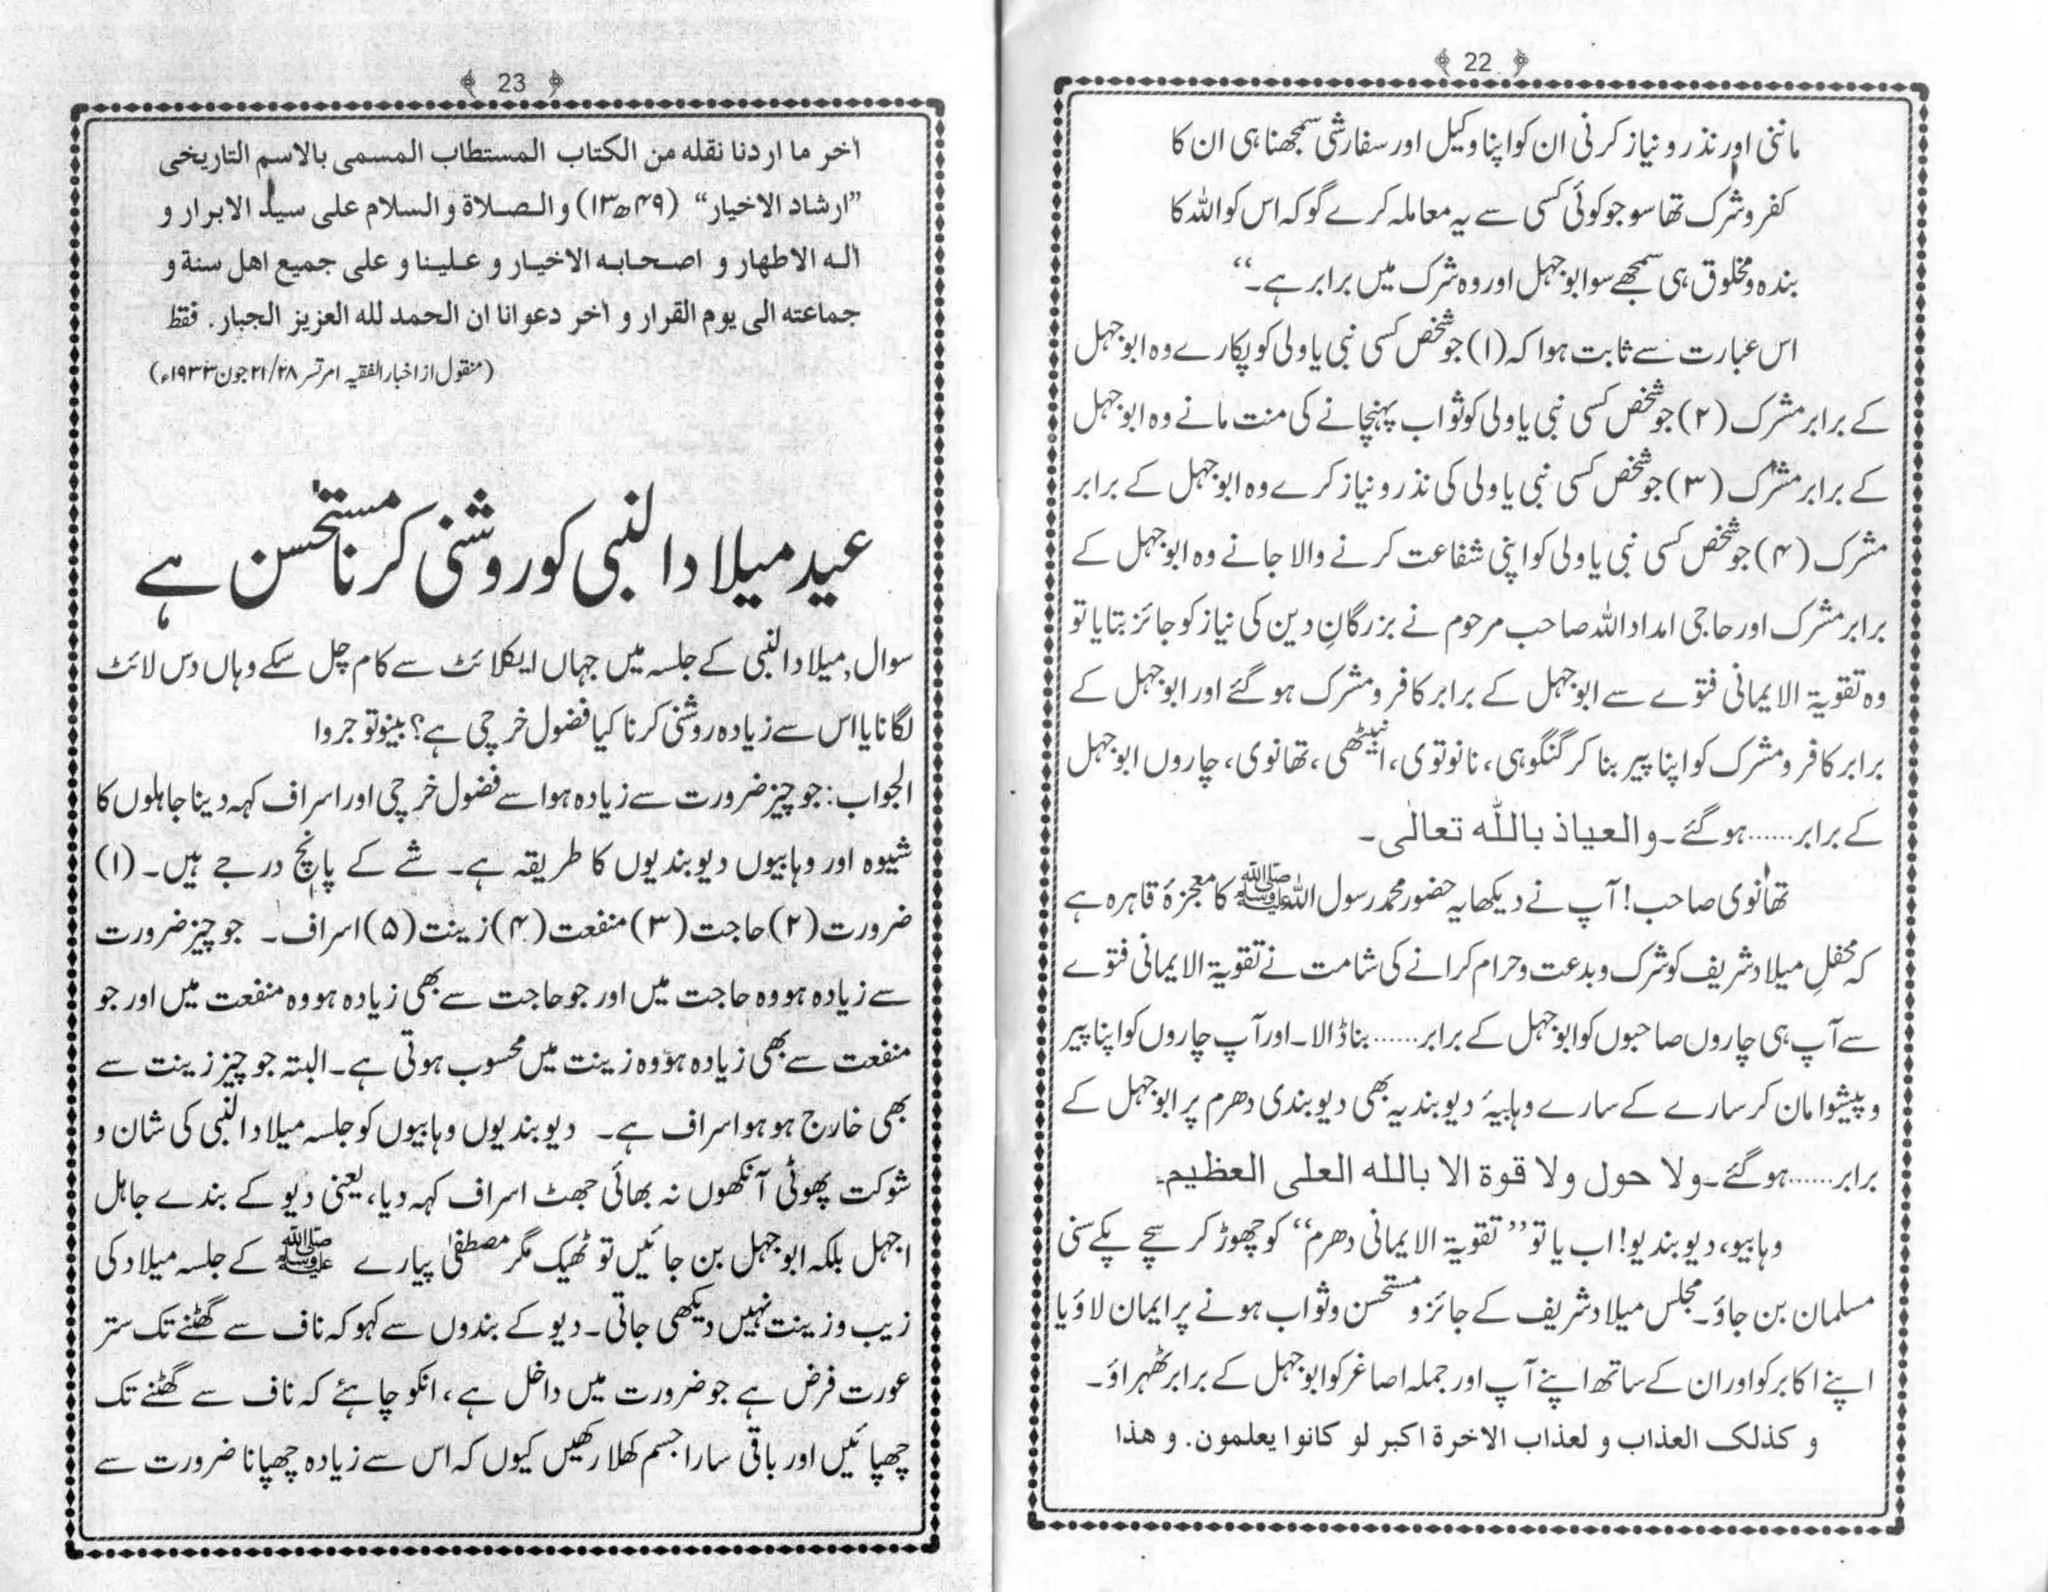 22
ماننی اور نذر و نیاز کرنی ان کو اپنا وکیل اور سفارشی سمجھنا ہی ان کا
کفر و شرک تھا سو جو کوئی کسی سے یہ معاملہ کرے گو کہ اس کو اللہ کا
بندہ و مخلوق ہی سمجھے سو ابوجہل اور وہ شرک میں برابر ہے۔‘‘
اس عبارت سے ثابت ہوا کہ (۱) جو شخص کسی نبی یا ولی کو پکارے وہ ابوجہل
کے برابر مشرک (۲) جو شخص کسی نبی یا ولی کو ثواب پہنچانے کی منت مانے وہ ابوجہل
کے برابر مشرک (۳) جو شخص کسی نبی یا ولی کی نذر و نیاز کرے وہ ابوجہل کے برابر
مشرک (۴) جو شخص کسی نبی یا ولی کو اپنی شفاعت کرنے والا جانے وہ ابوجہل کے
برابر مشرک اور حاجی امداد اللہ صاحب مرحوم نے بزرگانِ دین کی نیاز کو جائز بتایا تو
وہ تقویۃ الایمانی فتوے سے ابوجہل کے برابر کافر و مشرک ہوگئے اور ابوجہل کے
برابر کافر و مشرک کو اپنا پیر بنا کر گنگوہی، نانوتوی، انبیٹھی، تھانوی، چاروں ابوجہل
کے برابر......ہوگئے۔ والعیاذ باللہ تعالٰی۔
تھانوی صاحب! آپ نے دیکھا یہ حضور محمد رسول اللہ ﷺ کا معجزۂ قاہرہ ہے
کہ محفلِ میلاد شریف کو شرک و بدعت و حرام کرانے کی شامت نے تقویۃ الایمانی فتوے
سے آپ ہی چاروں صاحبوں کو ابوجہل کے برابر......بنا ڈالا۔ اور آپ چاروں کو اپنا پیر
و پیشوا مان کر سارے کے سارے وہابیۂ دیوبندیہ بھی دیوبندی دھرم پر ابوجہل کے
برابر......ہوگئے۔ ولا حول ولا قوۃ الا باللہ العلی العظیم۔
وہابیو، دیوبندیو! اب یا تو ’’تقویۃ الایمانی دھرم‘‘ کو چھوڑ کر سچے پکے سنی
مسلمان بن جاؤ۔ مجلس میلاد شریف کے جائز و مستحسن و ثواب ہونے پر ایمان لاؤ یا
اپنے اکابر کو اور ان کے ساتھ اپنے آپ اور جملہ اصاغر کو ابوجہل کے برابر ٹھہراؤ۔
و کذلک العذاب و لعذاب الاخرۃ اکبر لو کانوا یعلمون. و ھذا
23
اٰخر ما اردنا نقله من الکتاب المستطاب المسمی بالاسم التاریخی
’’ارشاد الاخیار‘‘ (۱۳۴۹ھ) والصلاۃ والسلام علی سید الابرار و
اٰله الاطھار و اصحابه الاخیار و علینا و علی جمیع اھل سنة و
جماعته الی یوم القرار و اٰخر دعوانا ان الحمد لله العزیز الجبار. فقط
(منقول از اخبار الفقیہ امرتسر ۲۱/۲۸ جون ۱۹۳۳ء)
عید میلاد النبی کو روشنی کرنا مستحسن ہے
سوال: میلاد النبی کے جلسہ میں جہاں ایک لائٹ سے کام چل سکے وہاں دس لائٹ
لگانا یا اس سے زیادہ روشنی کرنا کیا فضول خرچی ہے؟ بینو توجروا
الجواب: جو چیز ضرورت سے زیادہ ہو اسے فضول خرچی اور اسراف کہہ دینا جاہلوں کا
شیوہ اور وہابیوں دیوبندیوں کا طریقہ ہے۔ شے کے پانچ درجے ہیں۔ (۱)
ضرورت (۲) حاجت (۳) منفعت (۴) زینت (۵) اسراف۔ جو چیز ضرورت
سے زیادہ ہو وہ حاجت میں اور جو حاجت سے بھی زیادہ ہو وہ منفعت میں اور جو
منفعت سے بھی زیادہ ہو وہ زینت میں محسوب ہوتی ہے۔ البتہ جو چیز زینت سے
بھی خارج ہو ہو اسراف ہے۔ دیوبندیوں وہابیوں کو جلسہ میلاد النبی کی شان و
شوکت پھوٹی آنکھوں نہ بھائی جھٹ اسراف کہہ دیا، یعنی دیو کے بندے جاہل
اجہل بلکہ ابوجہل بن جائیں تو ٹھیک مگر مصطفیٰ پیارے ﷺ کے جلسہ میلاد کی
زیب و زینت نہیں دیکھی جاتی۔ دیو کے بندوں سے کہو کہ ناف سے گھٹنے تک ستر
عورت فرض ہے جو ضرورت میں داخل ہے، انکو چاہئے کہ ناف سے گھٹنے تک
چھپائیں اور باقی سارا جسم کھلا رکھیں کیوں کہ اس سے زیادہ چھپانا ضرورت سے